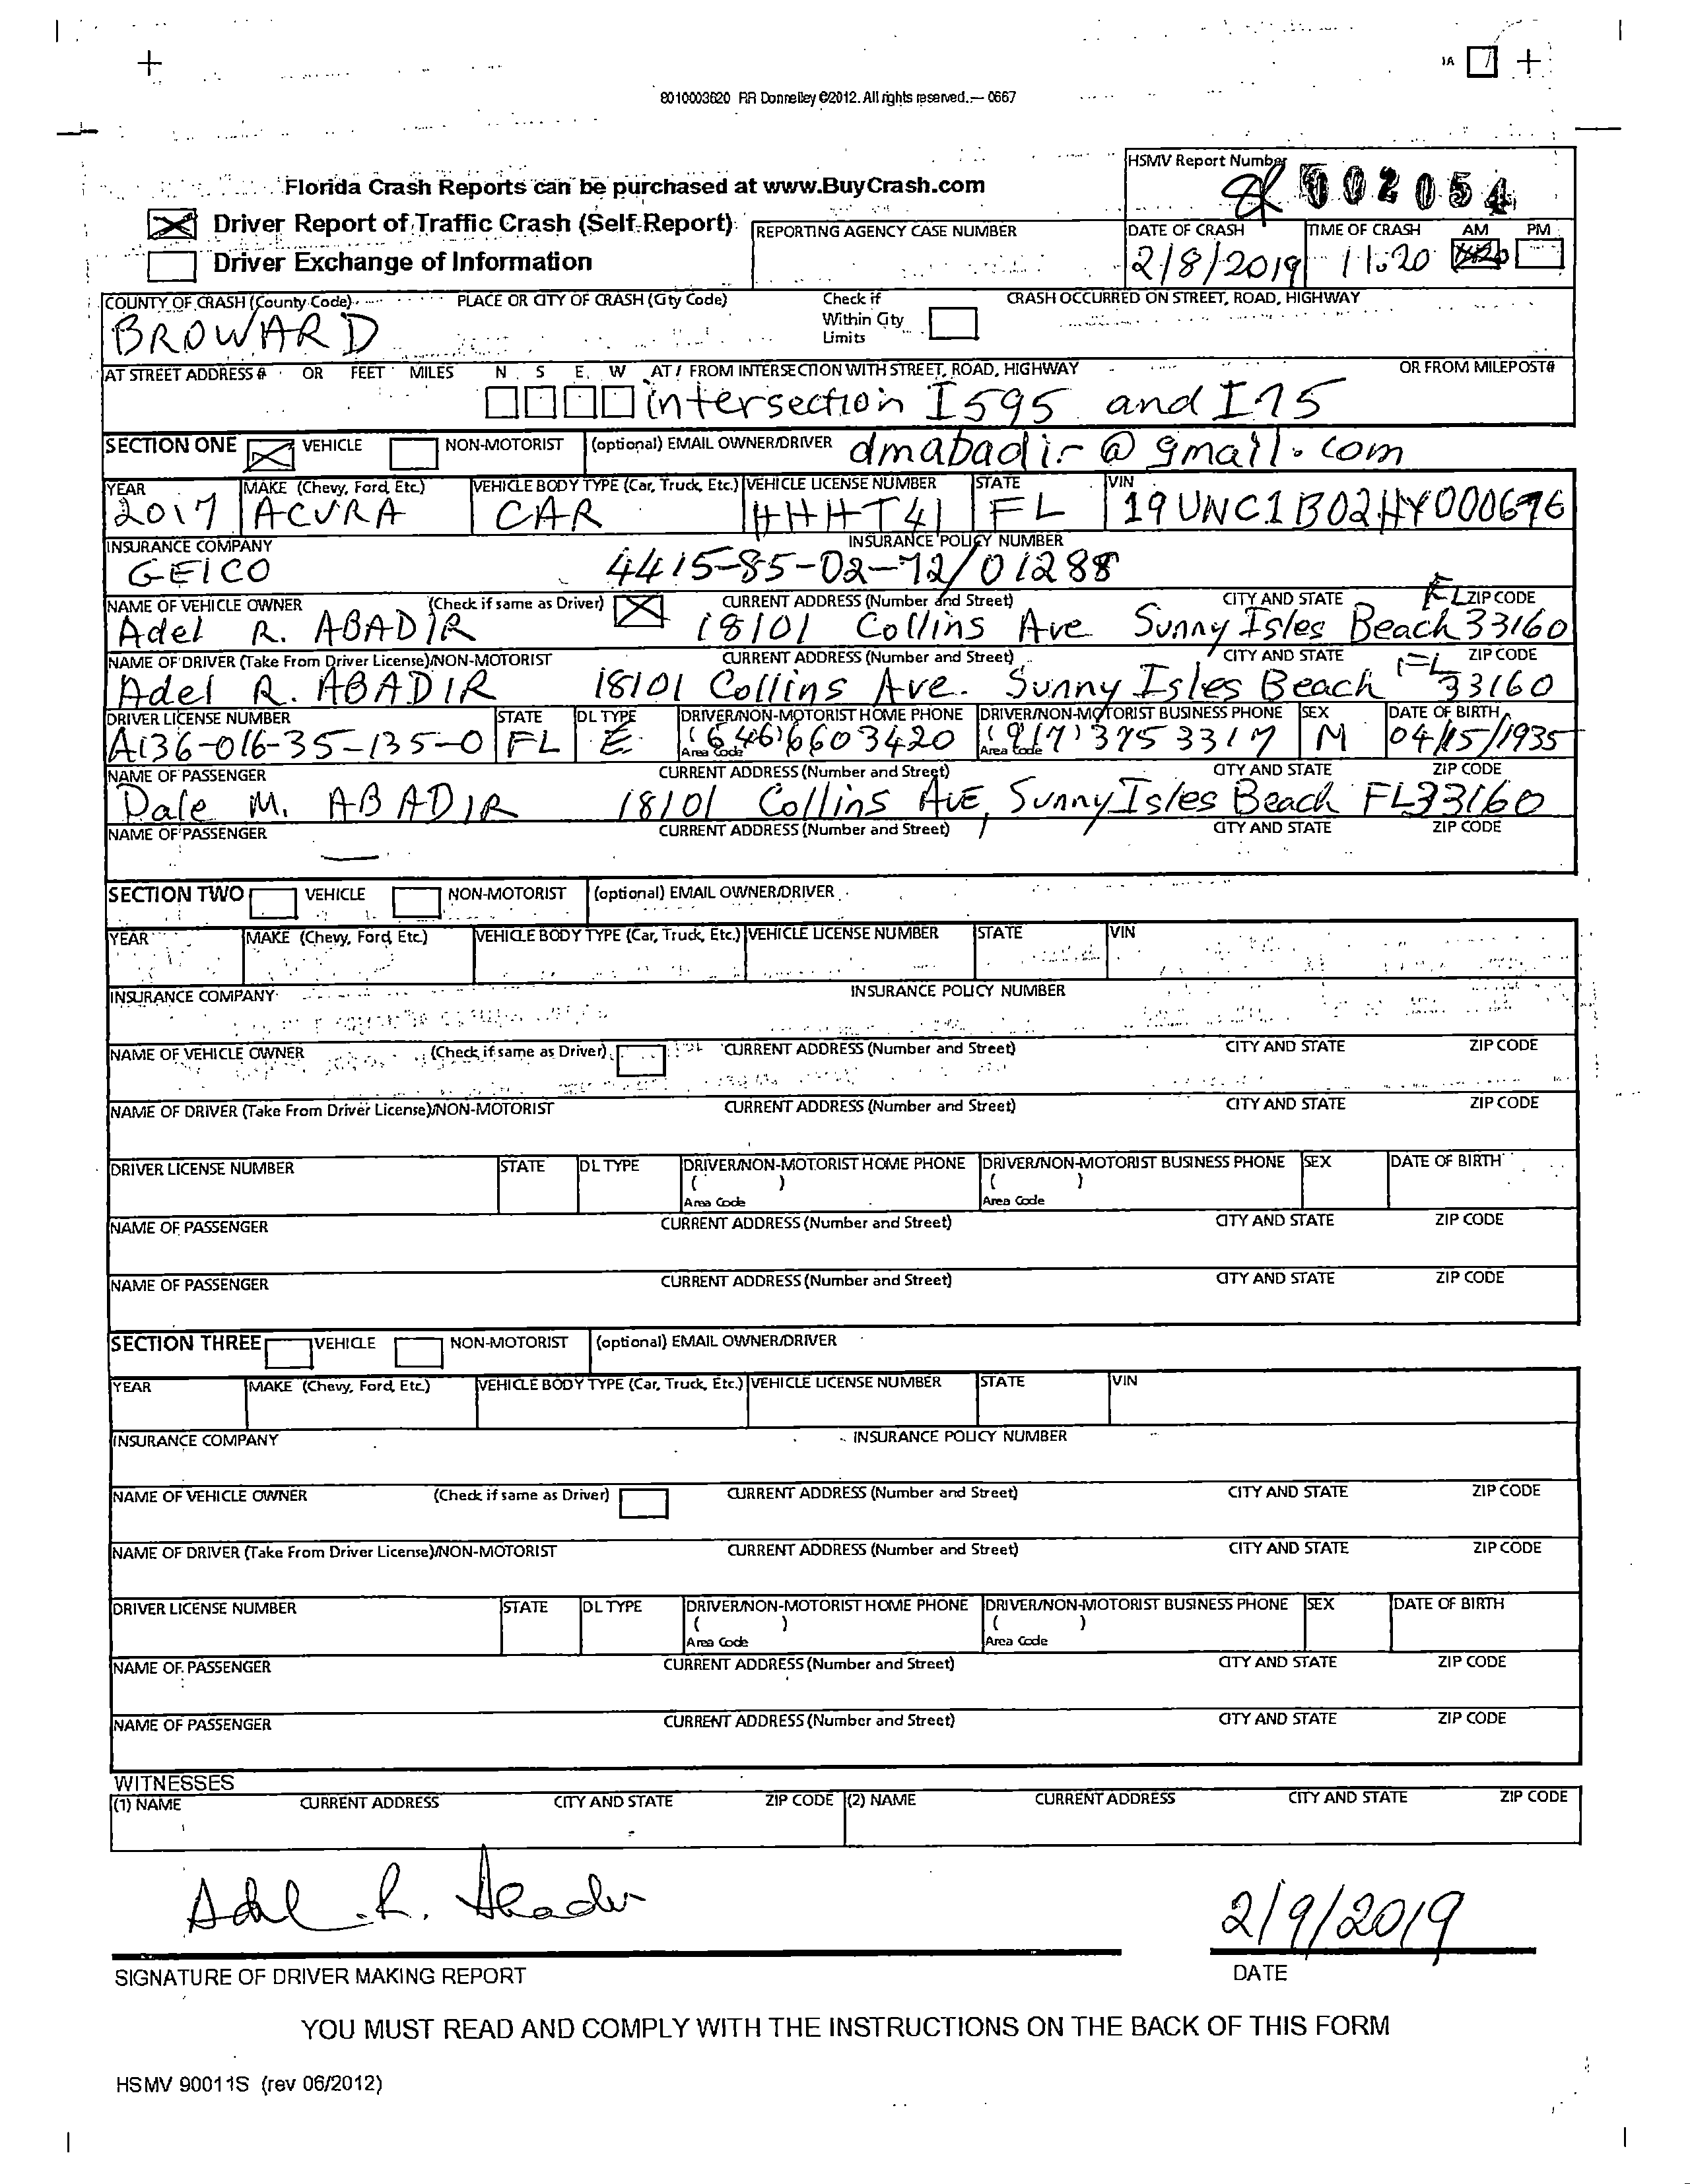 1A
8010003620 RR Donnelley ©2012. All rights reserved.— 0667
Florida Crash Reports can be purchased at www.BuyCrash.com
HSMV Report Number
002054
Driver Report of Traffic Crash (Self-Report)
REPORTING AGENCY CASE NUMBER DATE OF CRASH TIME OF CRASH AM PM
2/8/2019 11:20
Driver Exchange of Information
COUNTY OF CRASH (County Code) PLACE OR CITY OF CRASH (City Code) Check if Within City Limits CRASH OCCURRED ON STREET, ROAD, HIGHWAY
BROWARD
AT STREET ADDRESS # OR FEET MILES N S E W AT / FROM INTERSECTION WITH STREET, ROAD, HIGHWAY OR FROM MILEPOST#
intersection I595 and I75
SECTION ONE VEHICLE NON-MOTORIST (optional) EMAIL OWNER/DRIVER dmabadir@gmail.com
YEAR MAKE (Chevy, Ford, Etc.) VEHICLE BODY TYPE (Car, Truck, Etc.) VEHICLE LICENSE NUMBER STATE VIN
2017 ACURA CAR HHHT41 FL 19UNC1B02HY000676
INSURANCE COMPANY INSURANCE POLICY NUMBER
GEICO 4415-85-02-72/01288
NAME OF VEHICLE OWNER (Check if same as Driver) CURRENT ADDRESS (Number and Street) CITY AND STATE FL ZIP CODE
Adel R. ABADIR 18101 Collins Ave Sunny Isles Beach 33160
NAME OF DRIVER (Take From Driver License)/NON-MOTORIST CURRENT ADDRESS (Number and Street) CITY AND STATE ZIP CODE
Adel R. ABADIR 18101 Collins Ave. Sunny Isles Beach FL 33160
DRIVER LICENSE NUMBER STATE DL TYPE DRIVER/NON-MOTORIST HOME PHONE DRIVER/NON-MOTORIST BUSINESS PHONE SEX DATE OF BIRTH
A136-016-35-135-0 FL E (646)6603420 (917)3753317 M 04/15/1935
Area Code Area Code
NAME OF PASSENGER CURRENT ADDRESS (Number and Street) CITY AND STATE ZIP CODE
Dale M. ABADIR 18101 Collins AVE, Sunny Isles Beach FL33160
NAME OF PASSENGER CURRENT ADDRESS (Number and Street) CITY AND STATE ZIP CODE
—
SECTION TWO VEHICLE NON-MOTORIST (optional) EMAIL OWNER/DRIVER
YEAR MAKE (Chevy, Ford, Etc.) VEHICLE BODY TYPE (Car, Truck, Etc.) VEHICLE LICENSE NUMBER STATE VIN
INSURANCE COMPANY INSURANCE POLICY NUMBER
NAME OF VEHICLE OWNER (Check if same as Driver) CURRENT ADDRESS (Number and Street) CITY AND STATE ZIP CODE
NAME OF DRIVER (Take From Driver License)/NON-MOTORIST CURRENT ADDRESS (Number and Street) CITY AND STATE ZIP CODE
DRIVER LICENSE NUMBER STATE DL TYPE DRIVER/NON-MOTORIST HOME PHONE DRIVER/NON-MOTORIST BUSINESS PHONE SEX DATE OF BIRTH
( ) ( )
Area Code Area Code
NAME OF PASSENGER CURRENT ADDRESS (Number and Street) CITY AND STATE ZIP CODE
NAME OF PASSENGER CURRENT ADDRESS (Number and Street) CITY AND STATE ZIP CODE
SECTION THREE VEHICLE NON-MOTORIST (optional) EMAIL OWNER/DRIVER
YEAR MAKE (Chevy, Ford, Etc.) VEHICLE BODY TYPE (Car, Truck, Etc.) VEHICLE LICENSE NUMBER STATE VIN
INSURANCE COMPANY INSURANCE POLICY NUMBER
NAME OF VEHICLE OWNER (Check if same as Driver) CURRENT ADDRESS (Number and Street) CITY AND STATE ZIP CODE
NAME OF DRIVER (Take From Driver License)/NON-MOTORIST CURRENT ADDRESS (Number and Street) CITY AND STATE ZIP CODE
DRIVER LICENSE NUMBER STATE DL TYPE DRIVER/NON-MOTORIST HOME PHONE DRIVER/NON-MOTORIST BUSINESS PHONE SEX DATE OF BIRTH
( ) ( )
Area Code Area Code
NAME OF PASSENGER CURRENT ADDRESS (Number and Street) CITY AND STATE ZIP CODE
NAME OF PASSENGER CURRENT ADDRESS (Number and Street) CITY AND STATE ZIP CODE
WITNESSES
(1) NAME CURRENT ADDRESS CITY AND STATE ZIP CODE (2) NAME CURRENT ADDRESS CITY AND STATE ZIP CODE
Adel R. Abadir 2/9/2019
SIGNATURE OF DRIVER MAKING REPORT DATE
YOU MUST READ AND COMPLY WITH THE INSTRUCTIONS ON THE BACK OF THIS FORM
HSMV 90011S (rev 06/2012)